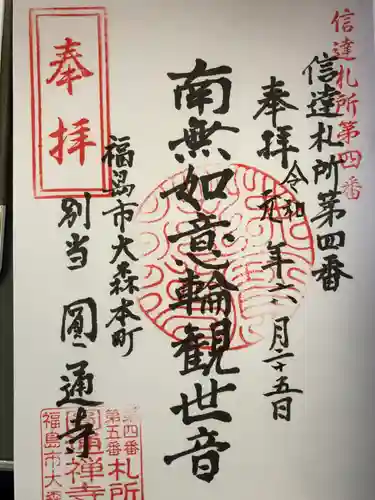 信達札所第四番
信達札所第四番
奉拝 令和元年六月二十五日
南無如意輪観世音
福島市大森本町
別当 圓通寺
奉拝
第四番
第五番
札所
圓通禅寺
福島市大森